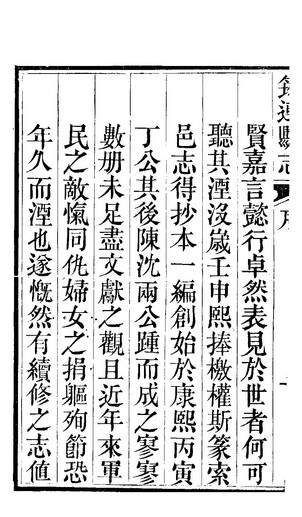 筠連縣志 序
賢嘉言懿行卓然表見於世者何可
聽其湮沒歲壬申熙捧檄權斯篆索
邑志得抄本一編創始於康熙丙寅
丁公其後陳沈兩公踵而成之寥寥
數册未足盡文獻之觀且近年來軍
民之敵愾同仇婦女之捐軀殉節恐
年久而湮也遂慨然有續修之志值